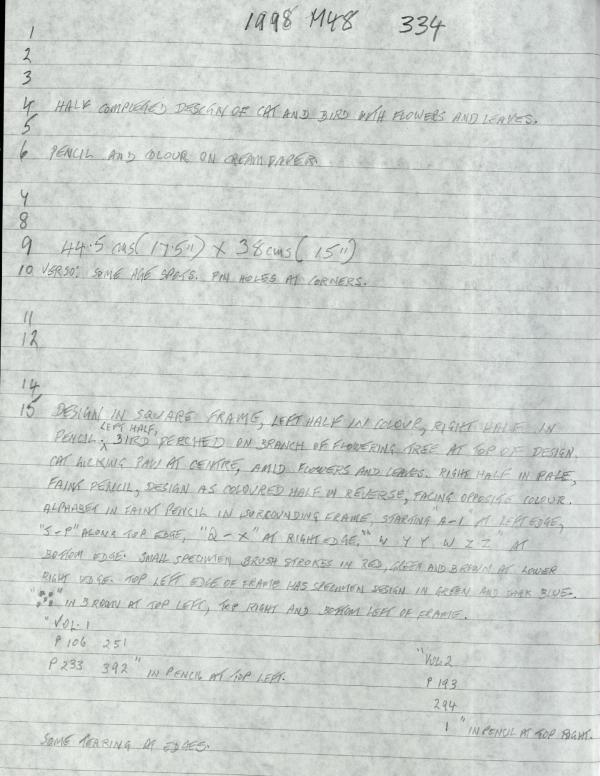 1998 M48 334
1
2
3
4 HALF COMPLETED DESIGN OF CAT AND BIRD WITH FLOWERS AND LEAVES.
5
6 PENCIL AND COLOUR ON CREAM PAPER.
7
8
9 44.5 cms (17.5") X 38 cms (15")
10 VERSO: SOME AGE SPOTS. PIN HOLES AT CORNERS.
11
12
14
15 DESIGN IN SQUARE FRAME, LEFT HALF IN COLOUR, RIGHT HALF IN
LEFT HALF,
PENCIL. BIRD PERCHED ON BRANCH OF FLOWERING TREE AT TOP OF DESIGN.
CAT LICKING PAW AT CENTRE, AMID FLOWERS AND LEAVES. RIGHT HALF IN PALE,
FAINT PENCIL, DESIGN AS COLOURED HALF IN REVERSE, FACING OPPOSITE COLOUR.
ALPHABET IN FAINT PENCIL IN SURROUNDING FRAME, STARTING "A-I" AT LEFT EDGE,
"J-P" ALONG TOP EDGE, "Q-X" AT RIGHT EDGE, " Y Y W Z Z" AT
BOTTOM EDGE. SMALL SPECIMEN BRUSH STROKES IN RED, GREEN AND BROWN AT LOWER
RIGHT EDGE. TOP LEFT EDGE OF FRAME HAS SPECIMEN DESIGN IN GREEN AND DARK BLUE.
IN BROWN AT TOP LEFT, TOP RIGHT AND BOTTOM LEFT OF FRAME.
"VOL. 1
P 106 251
P 233 392" IN PENCIL AT TOP LEFT.
"VOL. 2
P 193
294
1 " IN PENCIL AT TOP RIGHT.
SOME TEARING AT EDGES.